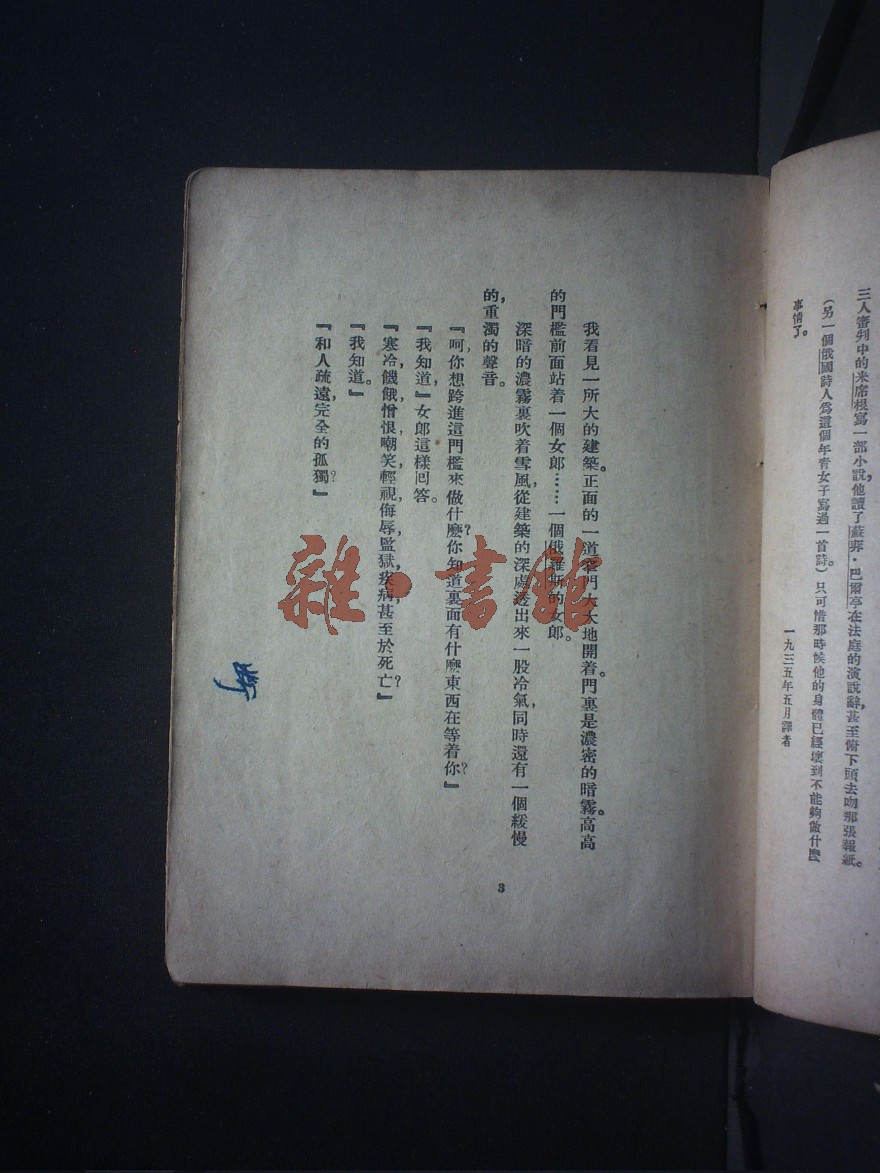 三人審判中的米席根寫一部小說，他讀了蘇菲·巴爾亭在法庭的演說辭，甚至俯下頭去吻那張報紙。
（另一個俄國詩人爲這個年靑女子寫過一首詩。）只可惜那時候他的身體已經壞到不能夠做什麽
事情了。
一九三五年五月譯者
我看見一所大的建築。正面的一道窄門大大地開着。門裏是濃密的暗霧。高高
的門檻前面站着一個女郎……一個俄羅斯的女郎。
深暗的濃霧裏吹着雪風，從建築的深處透出來一股冷氣，同時還有一個緩慢
的，重濁的聲音。
『呵，你想跨進這門檻來做什麽？你知道裏面有什麽東西在等着你？』
『我知道，』女郎這樣回答。
『寒冷，饑餓，憎恨，嘲笑，輕視，侮辱，監獄，疾病，甚至於死亡？』
『我知道。』
『和人疏遠，完全的孤獨？』
3
雜·書館